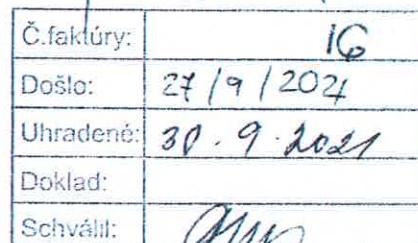 Č.faktúry: 16
Došlo: 27/9/2021
Uhradené: 30.9.2021
Doklad:
Schválil: